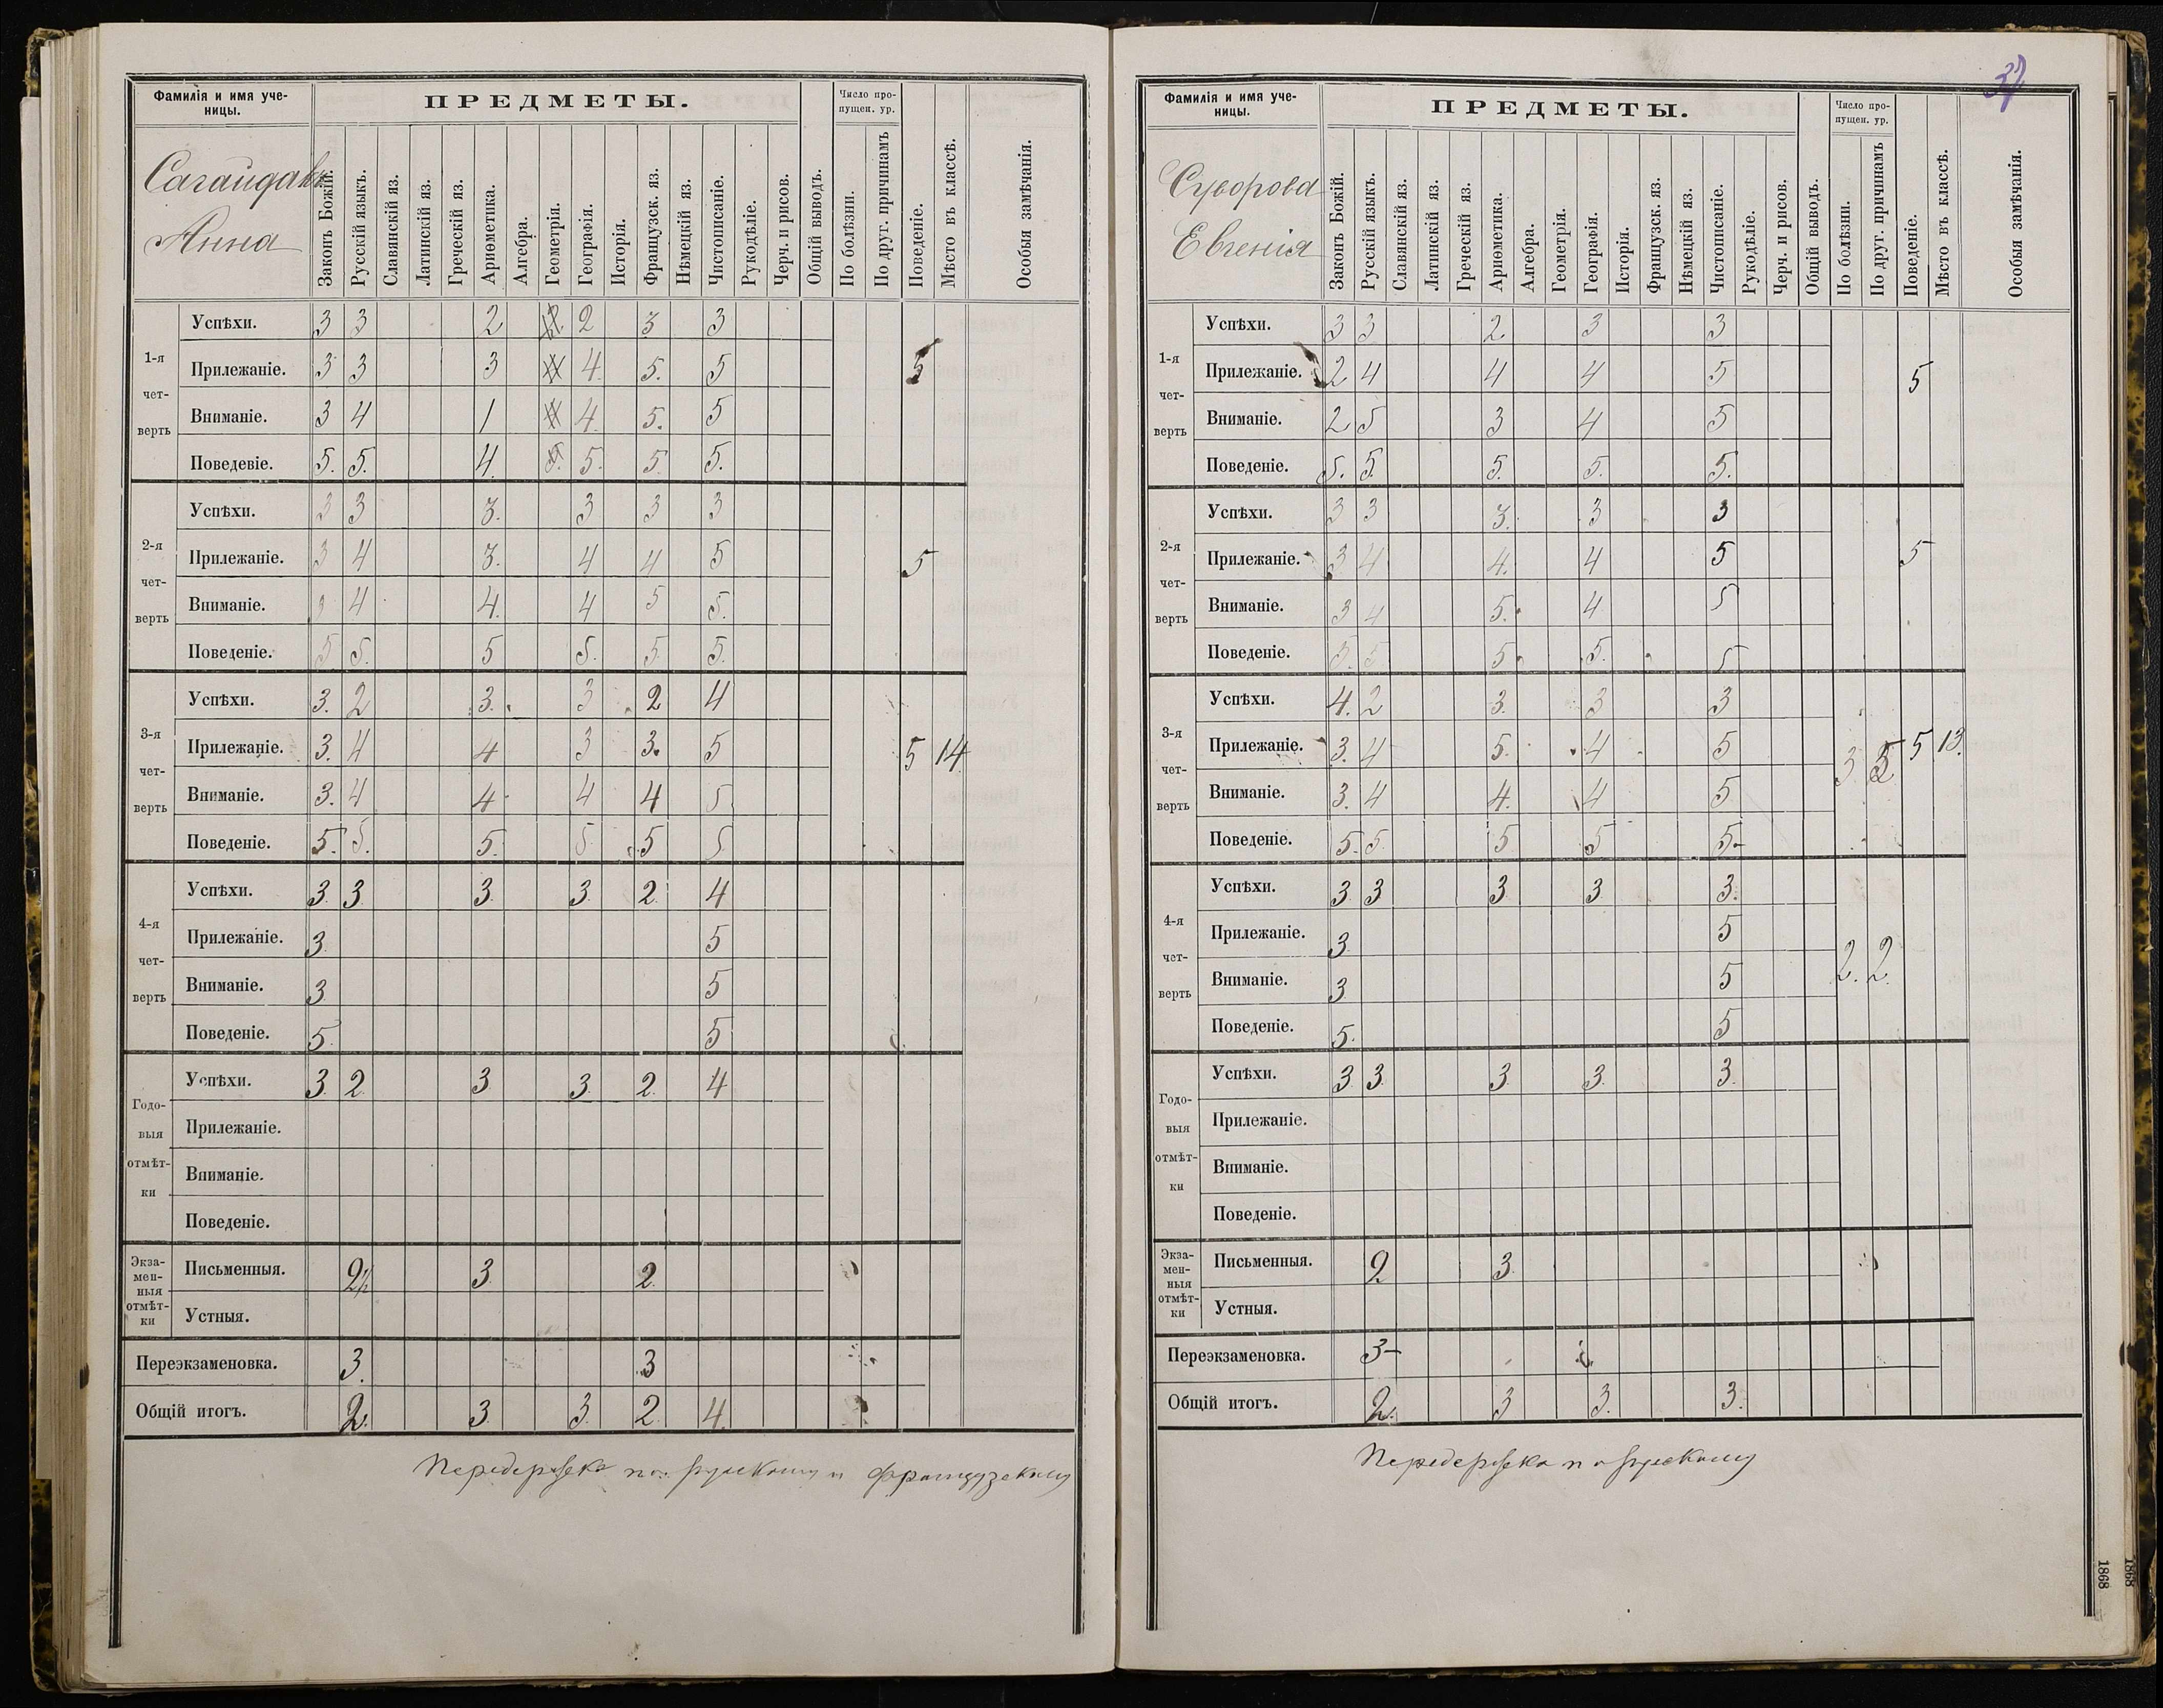 Фамилія и имя уче-
ницы.
ПРЕДМЕТЫ.
Число про-
пущен. ур.
Сагайдакъ
Анна
Законъ Божій.
Русскій языкъ.
Славянскій яз.
Латинскій яз.
Греческій яз.
Ариѳметика.
Алгебра.
Геометрія.
Географія.
Исторія.
Французск. яз.
Нѣмецкій яз.
Чистописаніе.
Рукодѣліе.
Черч. и рисов.
Общій выводъ.
По болѣзни.
По друг. причинамъ
Поведеніе.
Мѣсто въ классѣ.
Особыя замѣчанія.
1-я
чет-
верть
Успѣхи. 3 3 2 2 3 3
Прилежаніе. 3 3 3 4. 5. 5 5
Вниманіе. 3 4 1 4. 5. 5
Поведевіе. 5. 5. 4. 5. 5. 5. 5.
2-я
чет-
верть
Успѣхи. 3 3 3. 3 3 3
Прилежаніе. 3 4 3. 4 4 5 5
Вниманіе. 3 4 4. 4 5 5.
Поведеніе. 5 5. 5 5. 5. 5.
3-я
чет-
верть
Успѣхи. 3. 2 3. 3 2 4
Прилежаніе. 3. 4 4 3 3. 5 5 14
Вниманіе. 3. 4 4 4 4 5
Поведеніе. 5. 5. 5. 5 5 5
4-я
чет-
верть
Успѣхи. 3. 3. 3. 3. 2. 4
Прилежаніе. 3. 5
Вниманіе. 3. 5
Поведеніе. 5. 5
Годо-
выя
отмѣт-
ки
Успѣхи. 3. 2. 3. 3. 2. 4
Прилежаніе.
Вниманіе.
Поведеніе.
Экза-
мен-
ныя
отмѣт-
ки
Письменныя. 2½ 3. 2.
Устныя.
Переэкзаменовка. 3. 3
Общій итогъ. 2. 3. 3. 2. 4.
Передержка по русскому и французскому
37
Фамилія и имя уче-
ницы.
ПРЕДМЕТЫ.
Число про-
пущен. ур.
Суворова
Евгенія
Законъ Божій.
Русскій языкъ.
Славянскій яз.
Латинскій яз.
Греческій яз.
Ариѳметика.
Алгебра.
Геометрія.
Географія.
Исторія.
Французск. яз.
Нѣмецкій яз.
Чистописаніе.
Рукодѣліе.
Черч. и рисов.
Общій выводъ.
По болѣзни.
По друг. причинамъ
Поведеніе.
Мѣсто въ классѣ.
Особыя замѣчанія.
1-я
чет-
верть
Успѣхи. 3 3 2 3 3
Прилежаніе. 2 4 4 4 5 5
Вниманіе. 2 5 3 4 5
Поведеніе. 5. 5. 5. 5. 5.
2-я
чет-
верть
Успѣхи. 3 3 3. 3 3
Прилежаніе. 3 4 4. 4 5 5
Вниманіе. 3 4 5. 4 5
Поведеніе. 5. 5 5. 5. 5
3-я
чет-
верть
Успѣхи. 4. 2 3. 3 3
Прилежаніе. 3. 4 5. 4 5 3 5 13.
Вниманіе. 3. 4 4. 4 5
Поведеніе. 5. 5. 5 5 5-
4-я
чет-
верть
Успѣхи. 3. 3 3. 3. 3.
Прилежаніе. 3. 5
Вниманіе. 3. 5 2. 2.
Поведеніе. 5. 5
Годо-
выя
отмѣт-
ки
Успѣхи. 3. 3. 3. 3. 3.
Прилежаніе.
Вниманіе.
Поведеніе.
Экза-
мен-
ныя
отмѣт-
ки
Письменныя. 2. 3.
Устныя.
Переэкзаменовка. 3-
Общій итогъ. 2. 3 3. 3.
Передержка по русскому
1868
1868